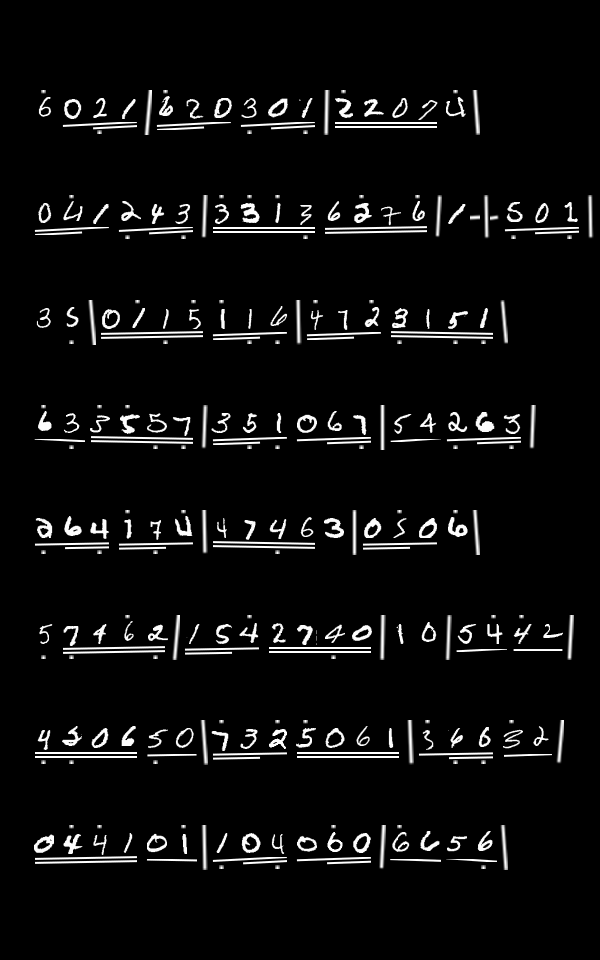 6 0 2 1 | 6 2 0 3 0 1 | 2 2 0 7 4 |
0 4 1 2 4 3 | 3 3 1 3 6 2 7 6 | 1 - | - 5 0 1 |
3 5 | 0 1 1 5 1 1 6 | 4 7 2 3 1 5 1 |
6 3 3 5 5 7 | 3 5 1 0 6 7 | 5 4 2 6 3 |
2 6 4 1 7 4 | 4 7 4 6 3 | 0 5 0 6 |
5 7 4 6 2 | 1 5 4 2 7 4 0 | 1 0 | 5 4 4 2 |
4 5 0 6 5 0 | 7 3 2 5 0 6 1 | 3 6 6 3 2 |
0 4 4 1 0 1 | 1 0 4 0 6 0 | 6 6 5 6 |